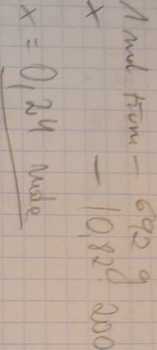 1 mol Atom - 692 g
x - 10,82 · 200
x = 0,24 mole